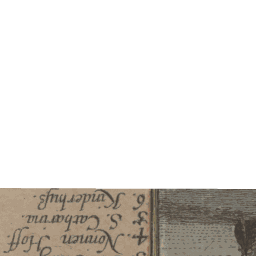 4. Nonnen Hoff.
5. S. Catharina.
6. Kinderhuß.